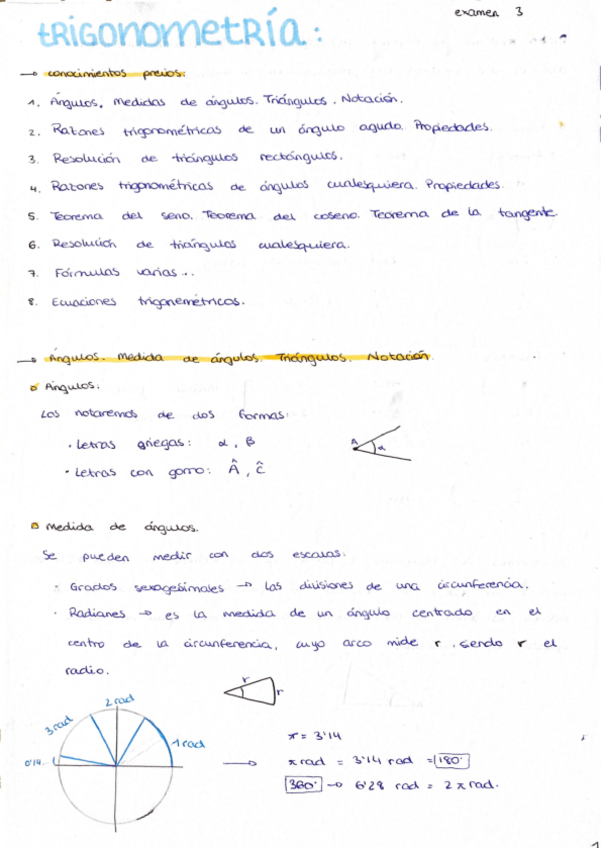 examen 3
tRIGonometRía:
→ conocimientos previos:
1. Ángulos. Medidas de ángulos. Triángulos. Notación.
2. Razones trigonométricas de un ángulo agudo. Propiedades.
3. Resolución de triángulos rectángulos.
4. Razones trigonométricas de ángulos cualesquiera. Propiedades.
5. Teorema del seno. Teorema del coseno. Teorema de la tangente.
6. Resolución de triángulos cualesquiera.
7. Fórmulas varias...
8. Ecuaciones trigonemétricos.
→ Ángulos. Medida de ángulos. Triángulos. Notación.
Ángulos:
Los notaremos de dos formas:
· Letras griegas: α, β
· Letras con gorro: Â, Ĉ
A α
Medida de ángulos.
Se pueden medir con dos escalas:
· Grados sexagesimales → Las divisiones de una circunferencia.
· Radianes → es la medida de un ángulo centrado en el
centro de la circunferencia, cuyo arco mide r, sendo r el
radio.
r
r
2 rad
3 rad
1 rad
0'14..
π = 3'14
π rad = 3'14 rad = 180°
360° → 6'28 rad = 2π rad.
1